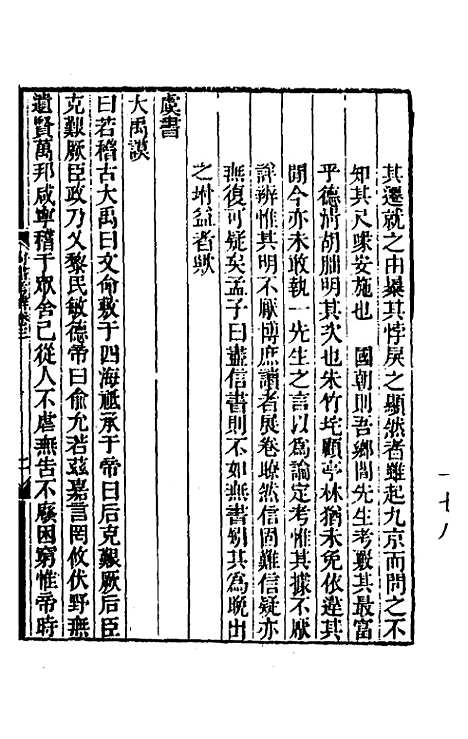 其遷就之由暴其悖戾之顯然者雖起九京而問之不
知其尺喙安施也　國朝則吾鄉閻先生考覈其最富
乎德清胡朏明其次也朱竹垞顧亭林猶未免依違其
間今亦未敢執一先生之言以為論定考惟其據不厭
詳辨惟其明不厭博庶讀者展卷瞭然信固難信疑亦
無復可疑矣孟子曰盡信書則不如無書矧其為晚出
之坿益者歟
虞書
大禹謨
曰若稽古大禹曰文命敷于四海祗承于帝曰后克艱厥后臣
克艱厥臣政乃乂黎民敏德帝曰俞允若茲嘉言罔攸伏野無
遺賢萬邦咸寧稽于眾舍己從人不虐無告不廢困窮惟帝時
二
一七八